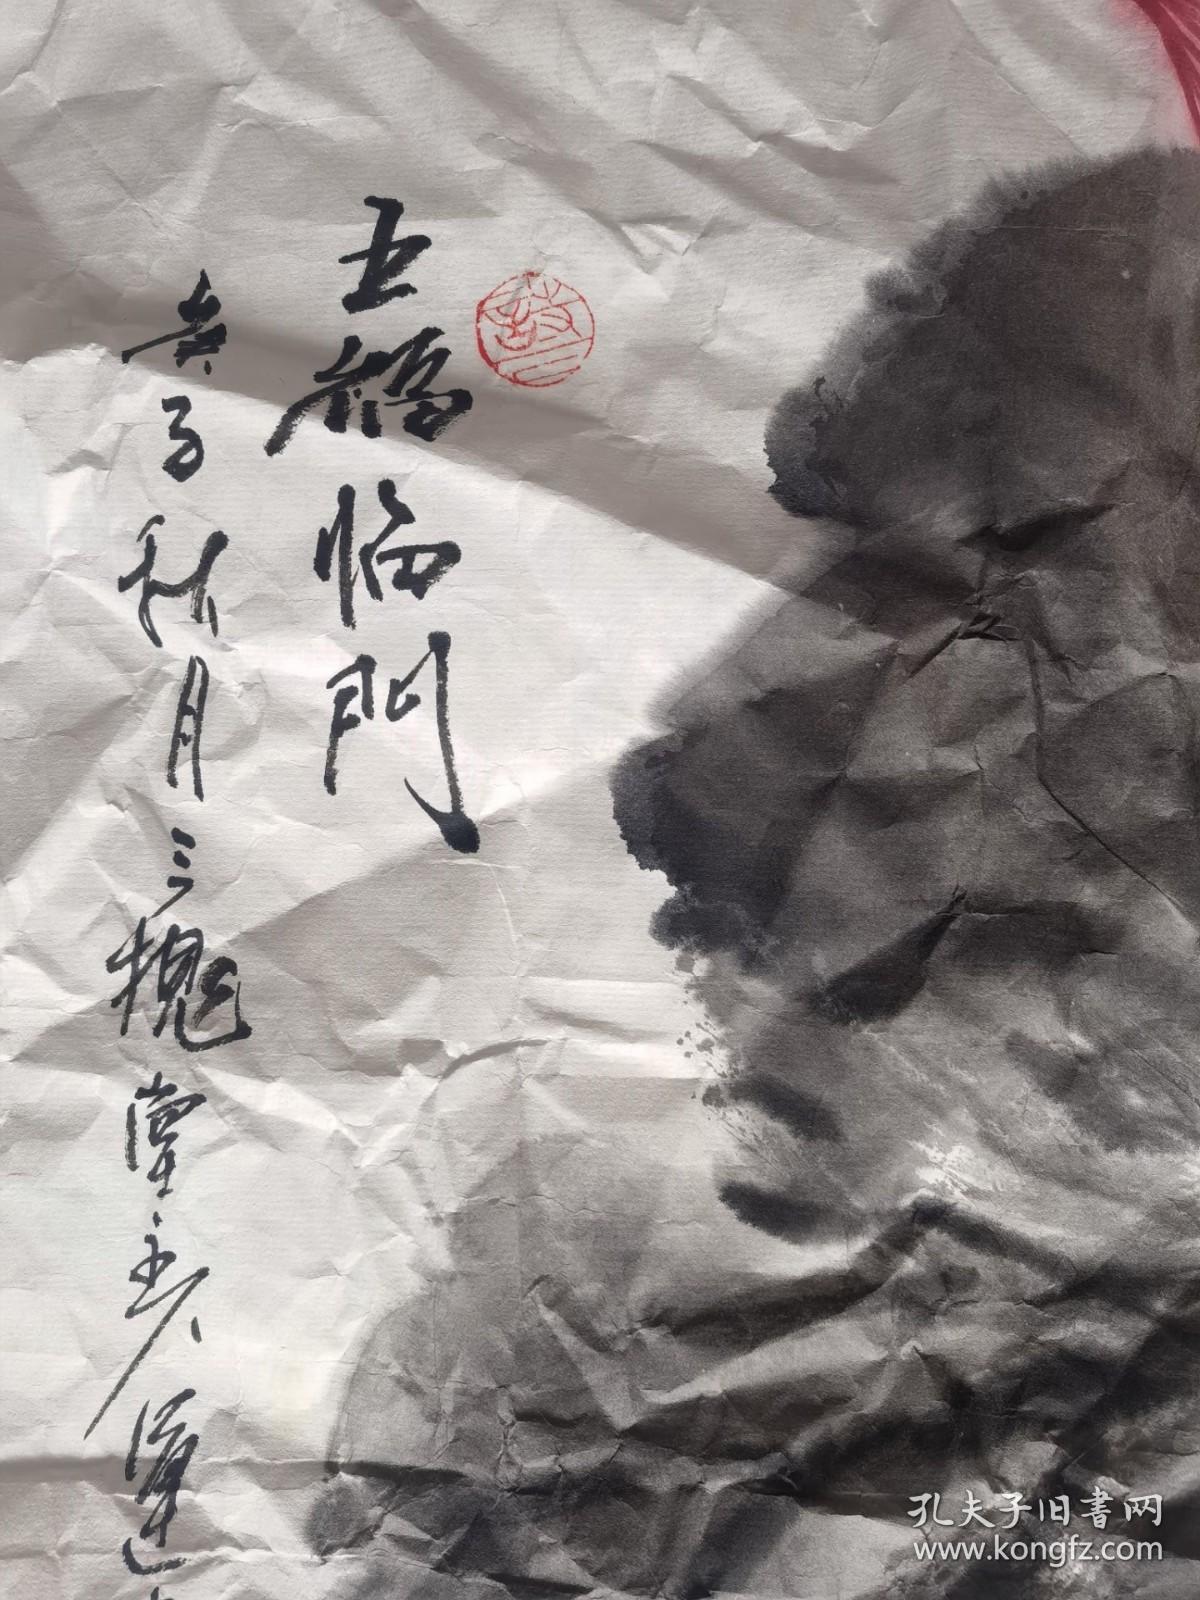 五福临門
庚子秋月三槐堂主人运
孔夫子旧書网
www.kongfz.com